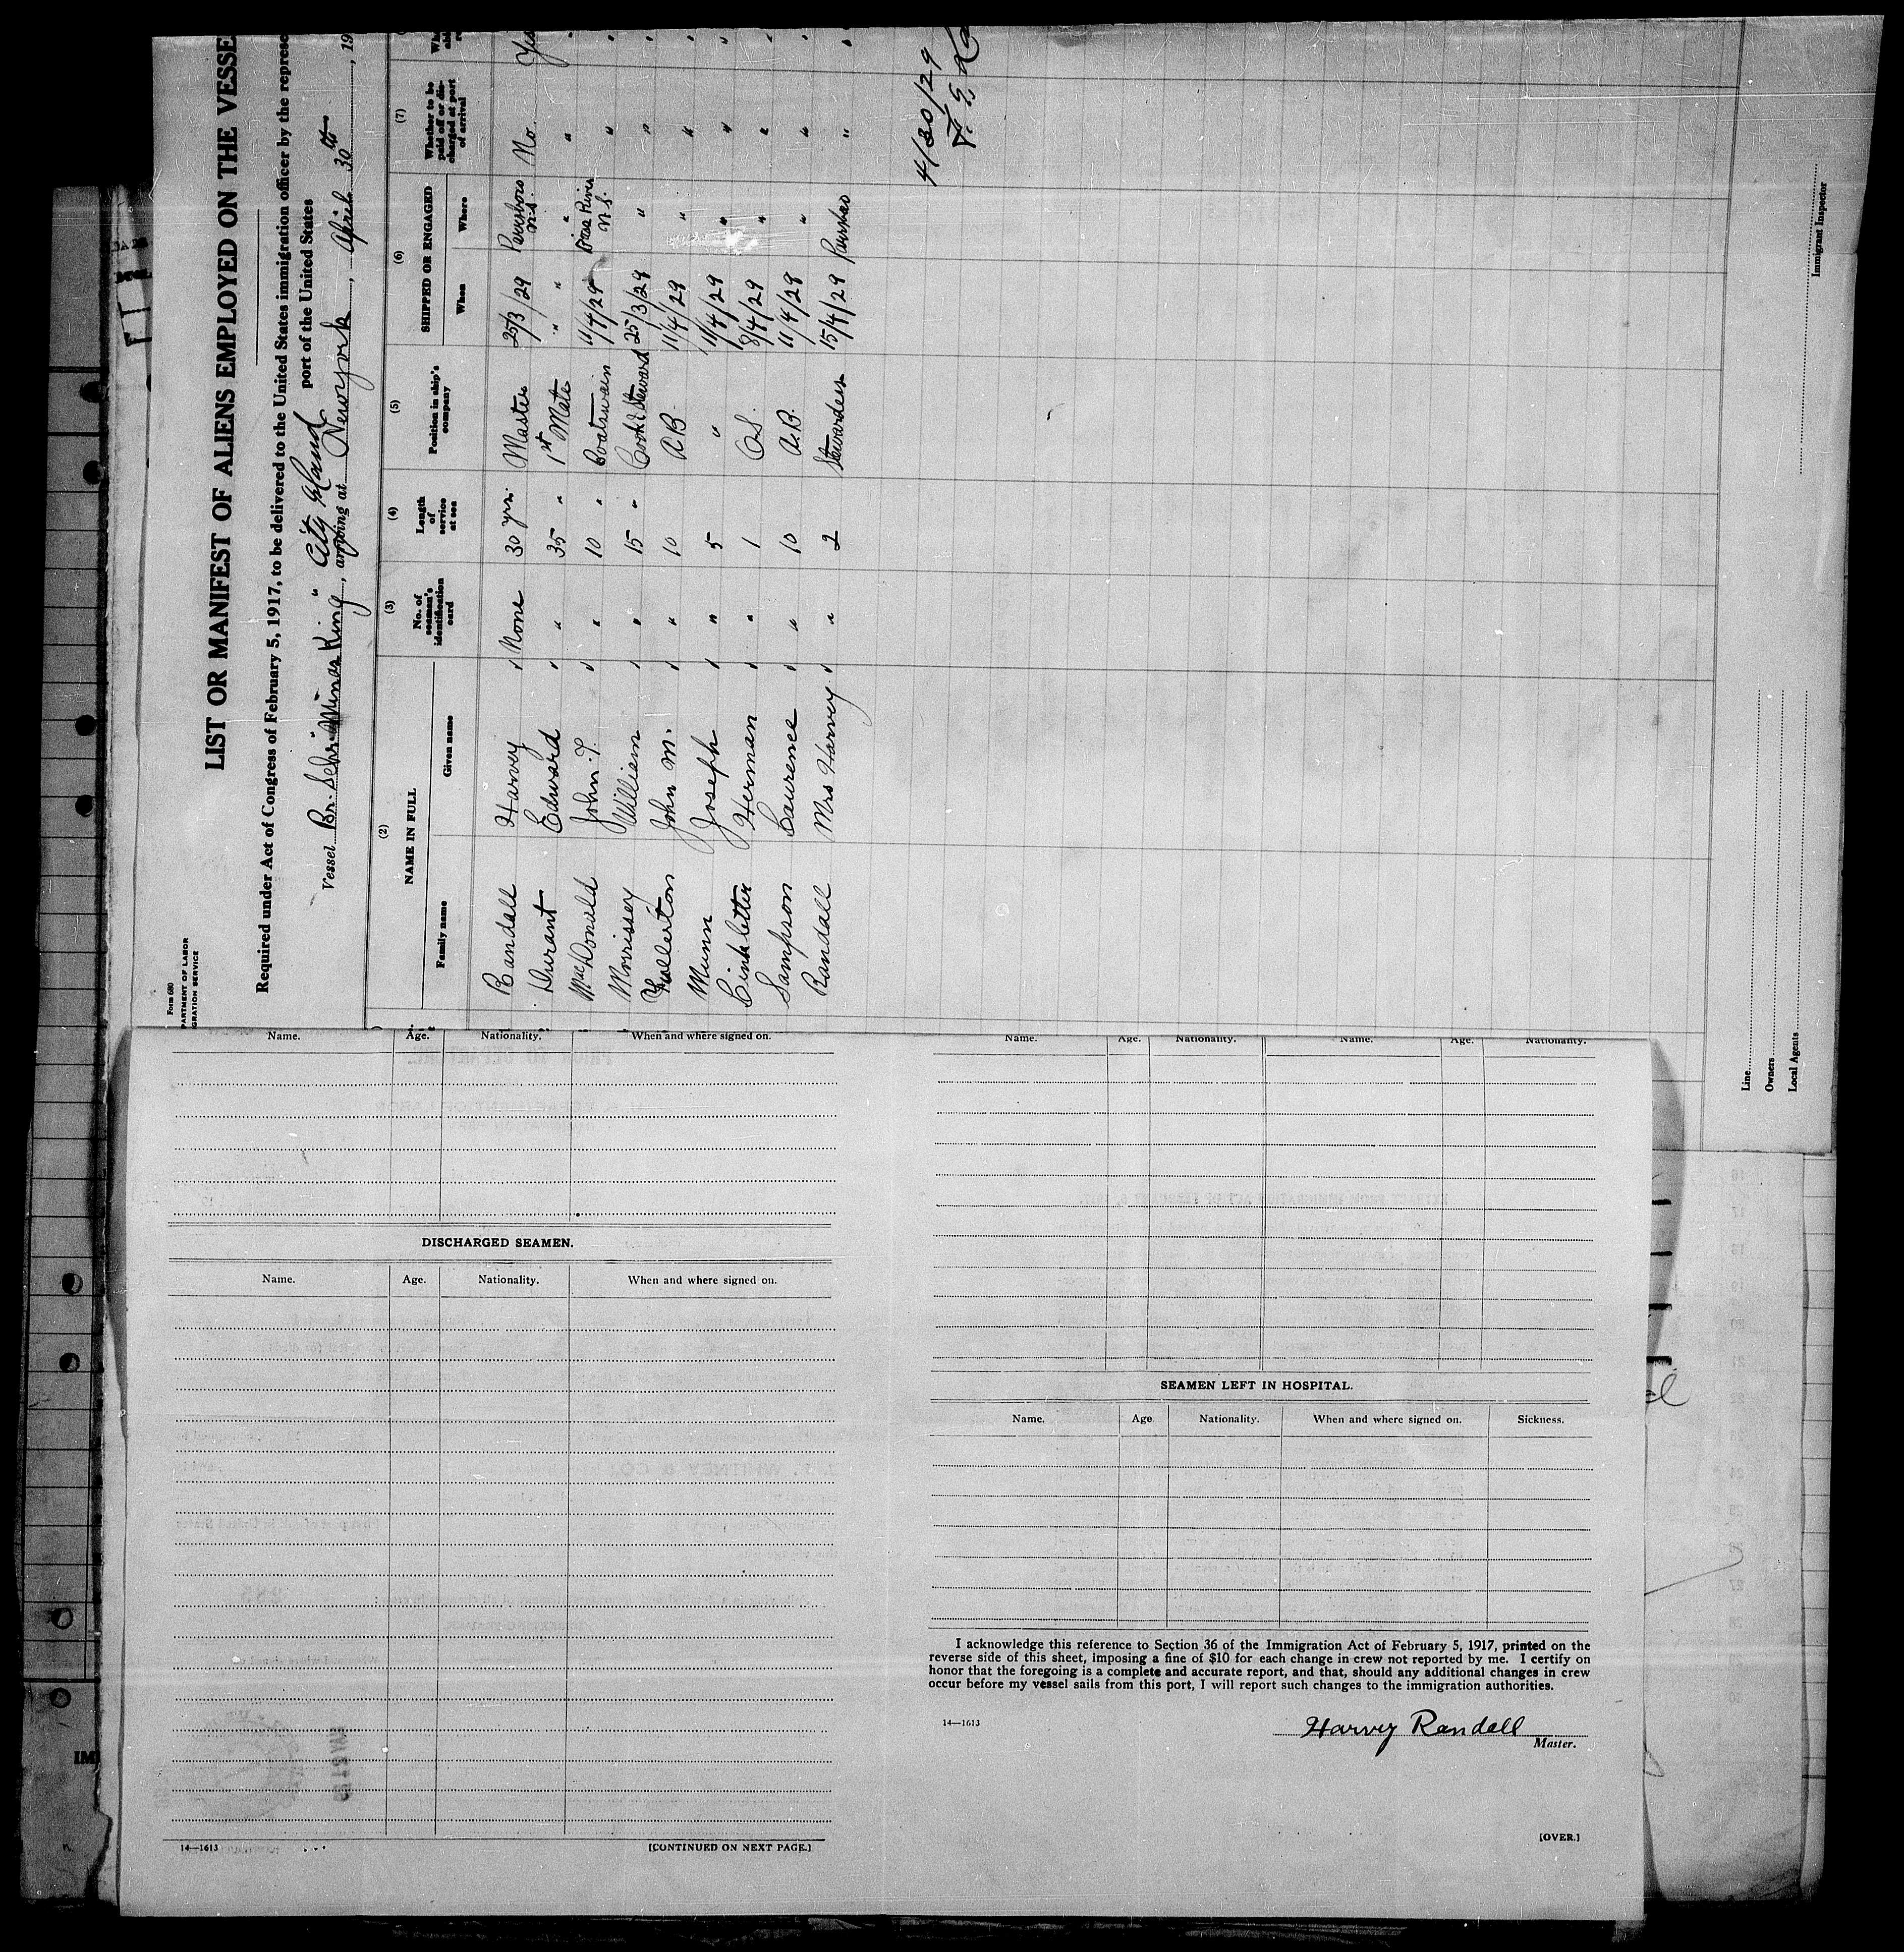 Form 680
PARTMENT OF LABOR
GRATION SERVICE
LIST OR MANIFEST OF ALIENS EMPLOYED ON THE VESSE
Required under Act of Congress of February 5, 1917, to be delivered to the United States immigration officer by the represe
port of the United States
City Island
Vessel Br. Schr. "Minas King", arriving at New York, April 30th, 19
(2) (3) (4) (5) (6) (7)
NAME IN FULL
Family name Given name
No. of seaman's identification card
Length of service at sea
Position in ship's company
SHIPPED OR ENGAGED
When Where
Whether to be paid off or discharged at port of arrival
Randall Harvey None 30 yrs. Master 25/3/29 Parrsboro N.S. No Yes
Durant Edward " 35 " 1st Mate " " " "
MacDonald John T. " 10 " Boatswain 11/4/29 River N.S. " "
Morrissey William " 15 " Cook & Steward 25/3/29 " " "
Fullerton John M. " 10 A.B. 11/4/29 " " "
Munn Joseph " 5 " 11/4/29 " " "
Herman " 1 O.S. 8/4/29 " " "
Sampson Laurence " 10 A.B. 11/4/29 " " "
Randall Mrs Harvey " 2 Stewardess 15/4/29 " "
4/30/29
Line
Owners
Local Agents
Immigrant Inspector
Name. Age. Nationality. When and where signed on.
DISCHARGED SEAMEN.
Name. Age. Nationality. When and where signed on.
14—1613
[CONTINUED ON NEXT PAGE.]
Name. Age. Nationality. Name. Age. Nationality.
SEAMEN LEFT IN HOSPITAL.
Name. Age. Nationality. When and where signed on. Sickness.
I acknowledge this reference to Section 36 of the Immigration Act of February 5, 1917, printed on the
reverse side of this sheet, imposing a fine of $10 for each change in crew not reported by me. I certify on
honor that the foregoing is a complete and accurate report, and that, should any additional changes in crew
occur before my vessel sails from this port, I will report such changes to the immigration authorities.
14—1613
Harvey Randall
Master.
[OVER.]